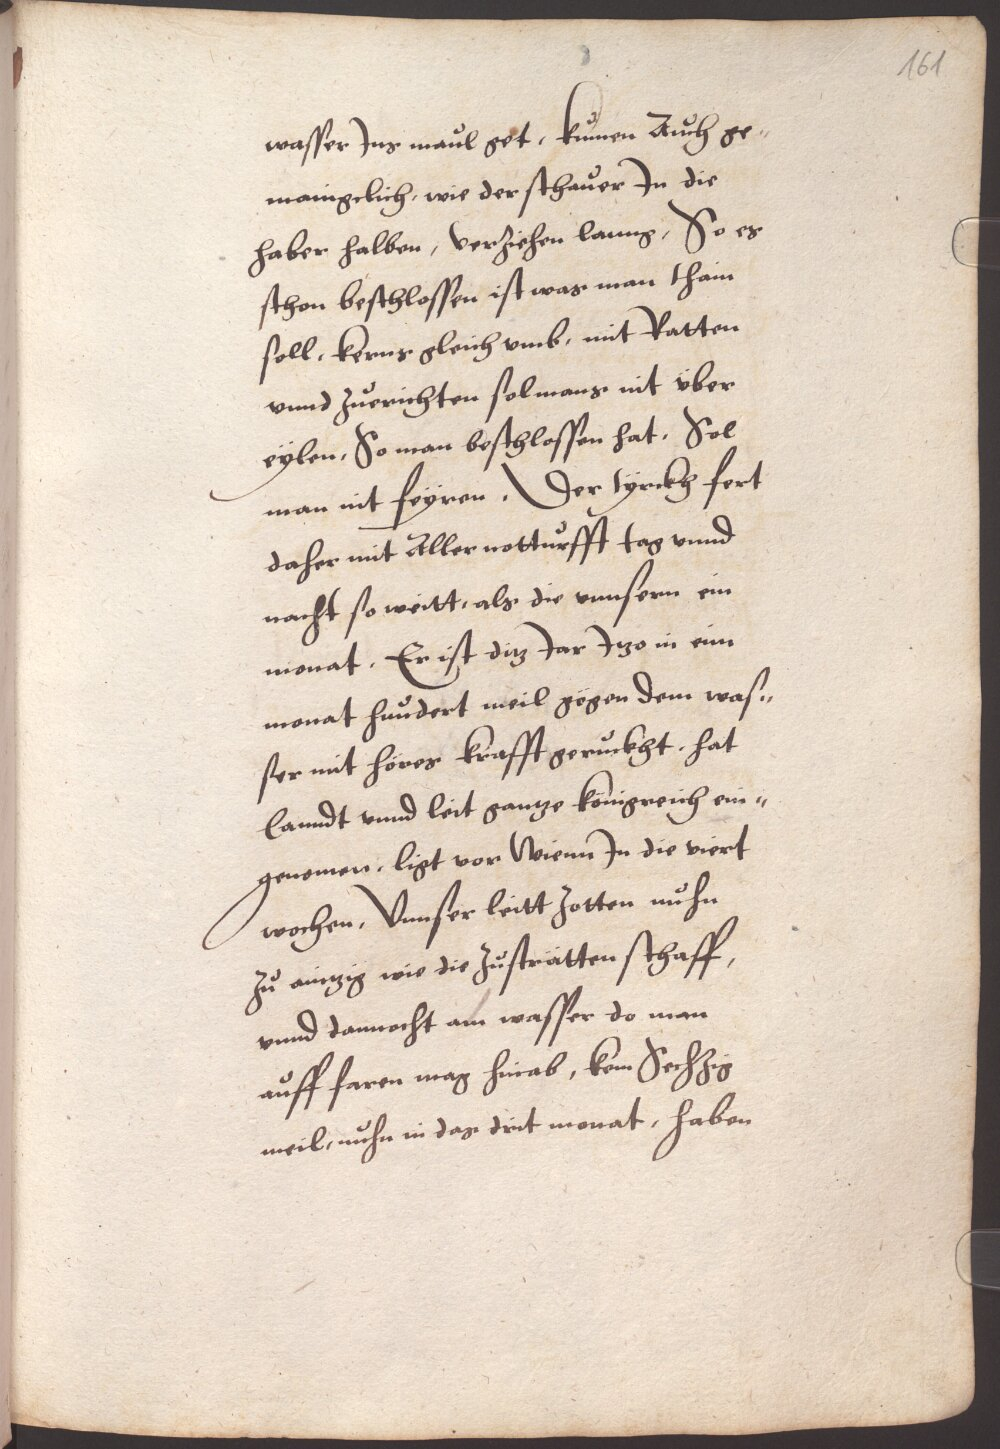 161
wasser Ins maůl get, kumen Aůch ge„
mainglich, wie der schaůer In die
haber halben, verziehen lanng, So es
schon beschlossen ist was man thain
soll, kerns gleich vmb, mit Ratten
vnnd Zůerichten sol mans nit über
eÿlen, So man beschlossen hat, Sol
man nit feÿren, Der tÿrckh fert
daher mit Aller notturfft tag vnnd
nacht so weitt, als die vnnsern ein
monat, Er ist ditz Jar Itzo in eim
monat hůndert meil gegen dem was„
ser mit höres krafft gerůckht, hat
lanndt vnnd leit gantze königreich ein„
genomen, ligt vor Wienn In die viert
wochen, Vnnser leitt Zotten nůhn
Zů aintzig wie die Zůsträtten schaff,
vnnd dannocht am wasser do man
aůff faren mag hinab, kom Sechzig
meil, nůhn in das drit monat, haben